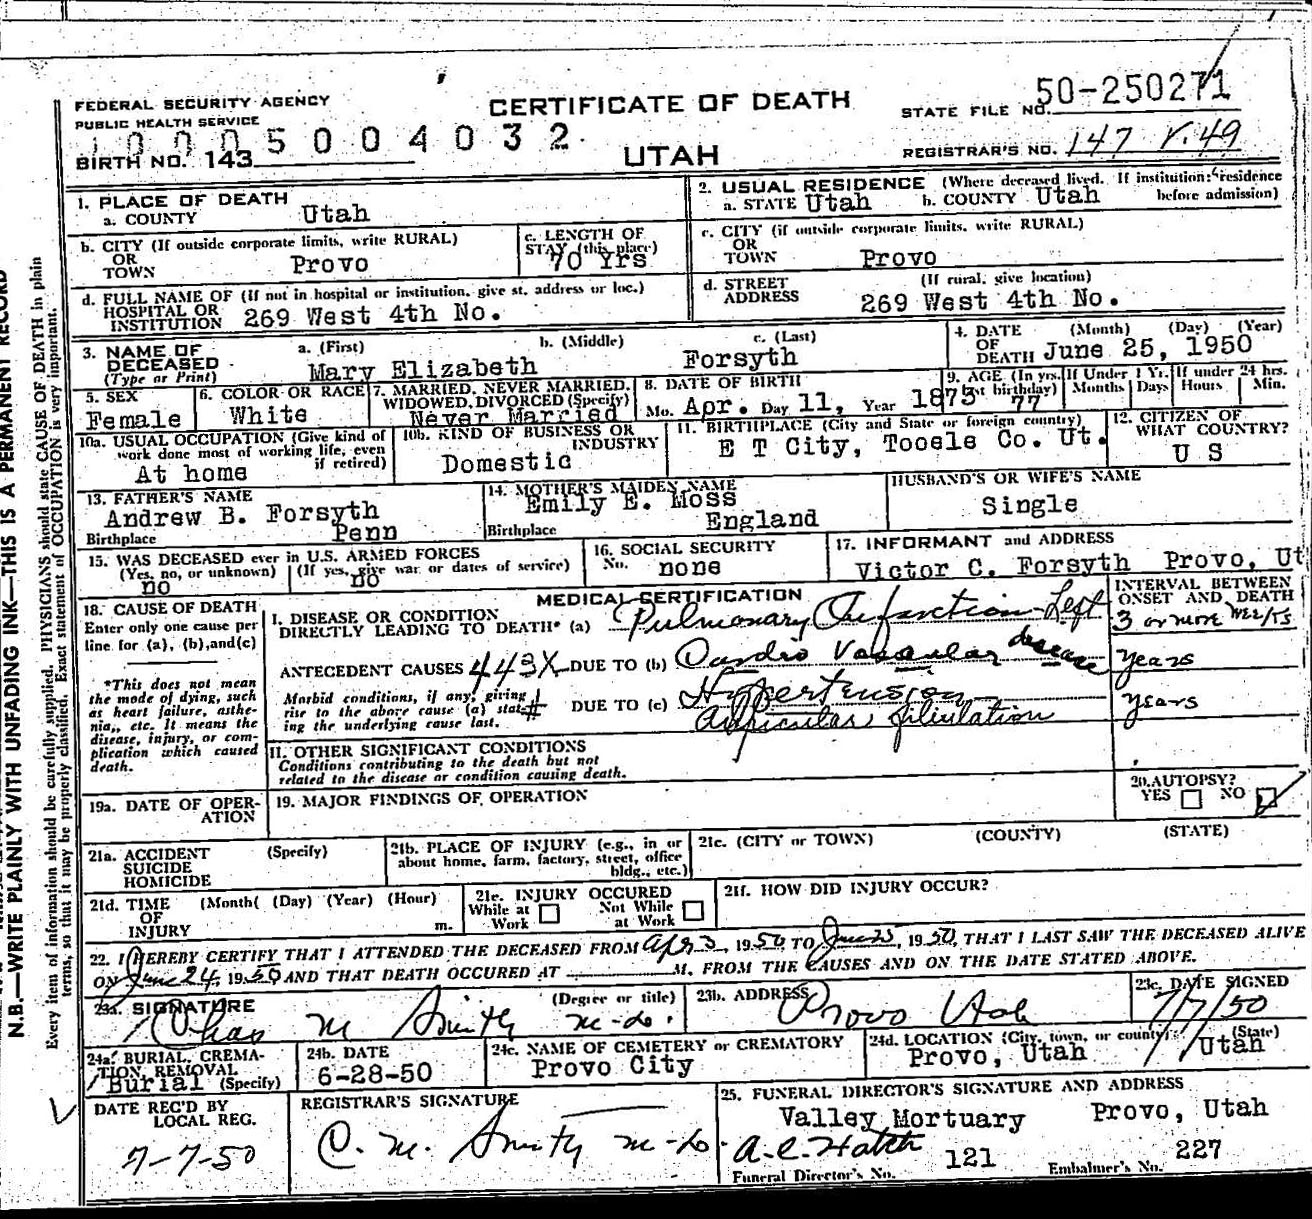 FEDERAL SECURITY AGENCY
PUBLIC HEALTH SERVICE
CERTIFICATE OF DEATH
STATE FILE NO. 50-250271
5004032
BIRTH NO. 143
UTAH
REGISTRAR'S NO. 147 V.49
1. PLACE OF DEATH
a. COUNTY Utah
2. USUAL RESIDENCE (Where deceased lived. If institution: residence before admission)
a. STATE Utah b. COUNTY Utah
b. CITY (If outside corporate limits, write RURAL)
OR
TOWN Provo
c. LENGTH OF
STAY (this place)
70 Yrs
c. CITY (if outside corporate limits. write RURAL)
OR
TOWN Provo
d. FULL NAME OF (If not in hospital or institution, give st. address or loc.)
HOSPITAL OR
INSTITUTION 269 West 4th No.
d. STREET (If rural, give location)
ADDRESS 269 West 4th No.
3. NAME OF DECEASED (Type or Print)
a. (First) b. (Middle) c. (Last)
Mary Elizabeth Forsyth
4. DATE OF DEATH (Month) (Day) (Year)
June 25, 1950
5. SEX
Female
6. COLOR OR RACE
White
7. MARRIED, NEVER MARRIED, WIDOWED, DIVORCED (Specify)
Never Married
8. DATE OF BIRTH
Mo. Apr. Day 11, Year 1873
9. AGE (In yrs. last birthday) 77
If Under 1 Yr. Months Days
If under 24 hrs. Hours Min.
10a. USUAL OCCUPATION (Give kind of work done most of working life, even if retired)
At home
10b. KIND OF BUSINESS OR INDUSTRY
Domestic
11. BIRTHPLACE (City and State or foreign country)
E T City, Tooele Co. Ut.
12. CITIZEN OF WHAT COUNTRY?
U S
13. FATHER'S NAME
Andrew B. Forsyth
Birthplace Penn
14. MOTHER'S MAIDEN NAME
Emily E. Moss
Birthplace England
HUSBAND'S OR WIFE'S NAME
Single
15. WAS DECEASED ever in U.S. ARMED FORCES
(Yes, no, or unknown) (If yes, give war or dates of service)
no no
16. SOCIAL SECURITY
No. none
17. INFORMANT and ADDRESS
Victor C. Forsyth Provo, Ut
MEDICAL CERTIFICATION
INTERVAL BETWEEN ONSET AND DEATH
18. CAUSE OF DEATH
Enter only one cause per
line for (a), (b), and (c)
*This does not mean
the mode of dying, such
as heart failure, asthe-
nia, etc. It means the
disease, injury, or com-
plication which caused
death.
I. DISEASE OR CONDITION
DIRECTLY LEADING TO DEATH* (a) Pulmonary Infarction-Left
3 or more weeks
ANTECEDENT CAUSES 443X DUE TO (b) Cardio Vascular disease
years
Morbid conditions, if any, giving
rise to the above cause (a) stat-
ing the underlying cause last.
DUE TO (c) Hypertension
Auricular fibulation
years
II. OTHER SIGNIFICANT CONDITIONS
Conditions contributing to the death but not
related to the disease or condition causing death.
19a. DATE OF OPER-
ATION
19. MAJOR FINDINGS OF OPERATION
20. AUTOPSY?
YES NO
21a. ACCIDENT (Specify)
SUICIDE
HOMICIDE
21b. PLACE OF INJURY (e.g., in or
about home, farm, factory, street, office
bldg., etc.)
21c. (CITY or TOWN) (COUNTY) (STATE)
21d. TIME (Month( (Day) (Year) (Hour)
OF
INJURY m.
21e. INJURY OCCURED
While at Work Not While at Work
21f. HOW DID INJURY OCCUR?
22. I HEREBY CERTIFY THAT I ATTENDED THE DECEASED FROM Apr 3, 1950 TO June 25, 1950, THAT I LAST SAW THE DECEASED ALIVE
ON June 24, 1950 AND THAT DEATH OCCURED AT M. FROM THE CAUSES AND ON THE DATE STATED ABOVE.
23a. SIGNATURE (Degree or title)
Chas M Smith M-D.
23b. ADDRESS
Provo Utah
23c. DATE SIGNED
7/7/50
24a. BURIAL, CREMA-
TION, REMOVAL
Burial (Specify)
24b. DATE
6-28-50
24c. NAME OF CEMETERY or CREMATORY
Provo City
24d. LOCATION (City, town, or county) (State)
Provo, Utah Utah
DATE REC'D BY
LOCAL REG.
7-7-50
REGISTRAR'S SIGNATURE
C. M. Smith M-D.
25. FUNERAL DIRECTOR'S SIGNATURE AND ADDRESS
Valley Mortuary Provo, Utah
A.C. Hatch 121 227
Funeral Director's No. Embalmer's No.
N.B.—WRITE PLAINLY WITH UNFADING INK—THIS IS A PERMANENT RECORD
Every item of information should be carefully supplied. PHYSICIANS should state CAUSE OF DEATH in plain
terms, so that it may be properly classified. Exact statement of OCCUPATION is very important.